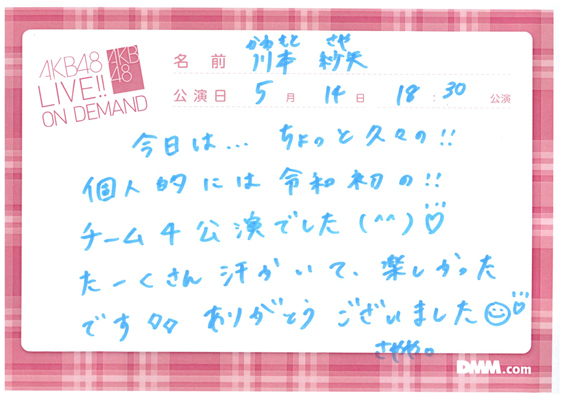 AKB48
LIVE!!
ON DEMAND
AKB
48
かわもと さや
名前 川本 紗矢
公演日 5月 14日 18:30 公演
今日は... ちょっと久々の!!
個人的には令和初の!!
チーム4公演でした(^^)♡
たーくさん汗かいて、楽しかった
です♪♪ ありがとうございました☺♡
さやや。
DMM.com